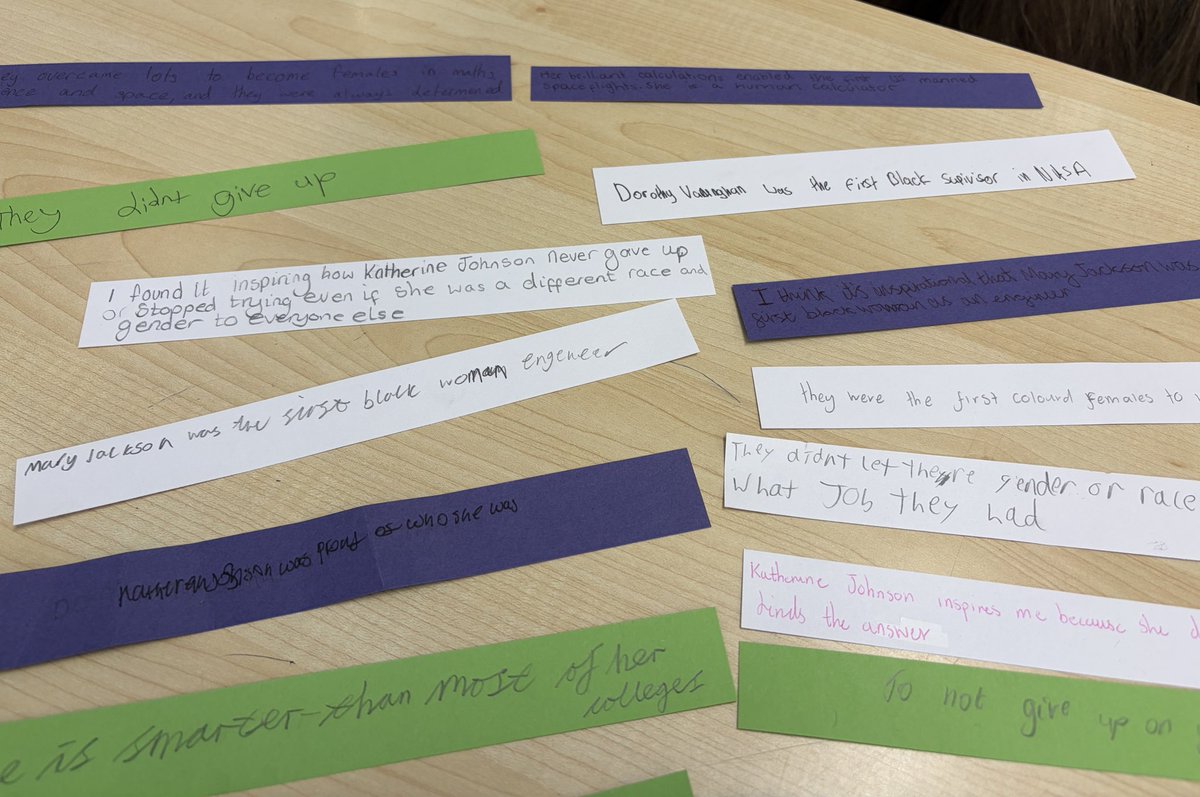 ey overcame lots to become females in maths,
ence and space, and they were always determened
Her brilliant calculations enabled the first us manned
spaceflights. She is a human calculator
They didnt give up
Dorothy Vaunghan was the first Black supivisor in NASA
I found it inspiring how Katherine Johnson never gave up
or stopped trying even if she was a different race and
gender to everyone else
I think it's inspirational that Mary Jackson was
first black woman as an engineer
Mary Jackson was the first black woman engeneer
they were the first colourd females to
They didnt let theyre gender or race
what Job they had
was proud of who she was
Katherine Johnson inspires me because she
finds the answer
e is smarter than most of her
colleges
To not give up on